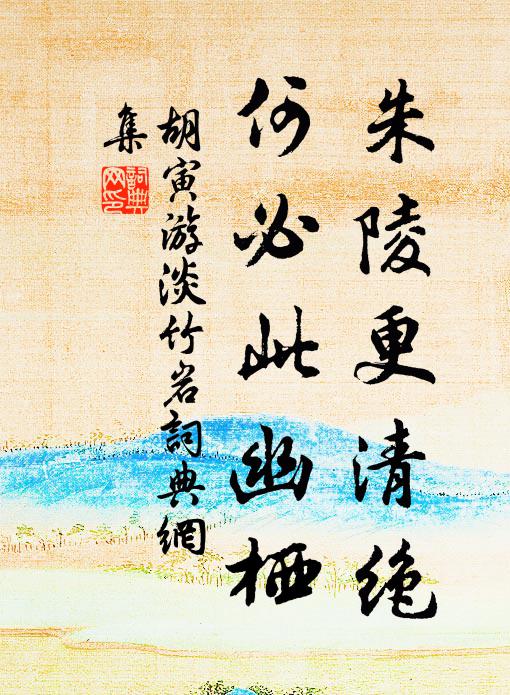 朱陵更清絶
何必此幽栖
胡寅游淡竹岩詞典網
集
詞典網印